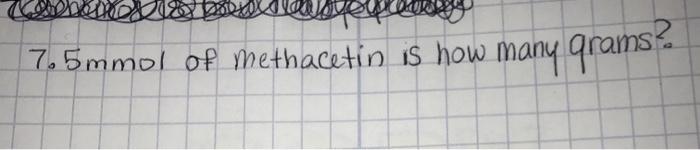 7.5mmol of methacetin is how many grams?